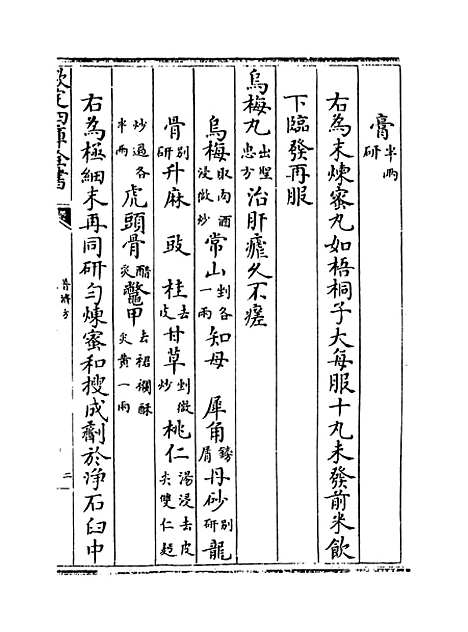 膏半兩研
右為末煉蜜丸如梧桐子大每服十丸未發前米飲
下臨發再服
烏梅丸出聖惠方治肝瘧久不瘥
烏梅取肉酒浸微炒常山剉各一兩知母犀角鎊屑丹砂别研龍
骨别研升麻豉桂去皮甘草剉微炒桃仁湯浸去皮尖雙仁麩
炒過各半兩虎頭骨醋炙鼈甲去裙襴酥炙黄一兩
右為極細末再同研勻煉蜜和搜成劑於淨石臼中
欽定四庫全書
普濟方
二